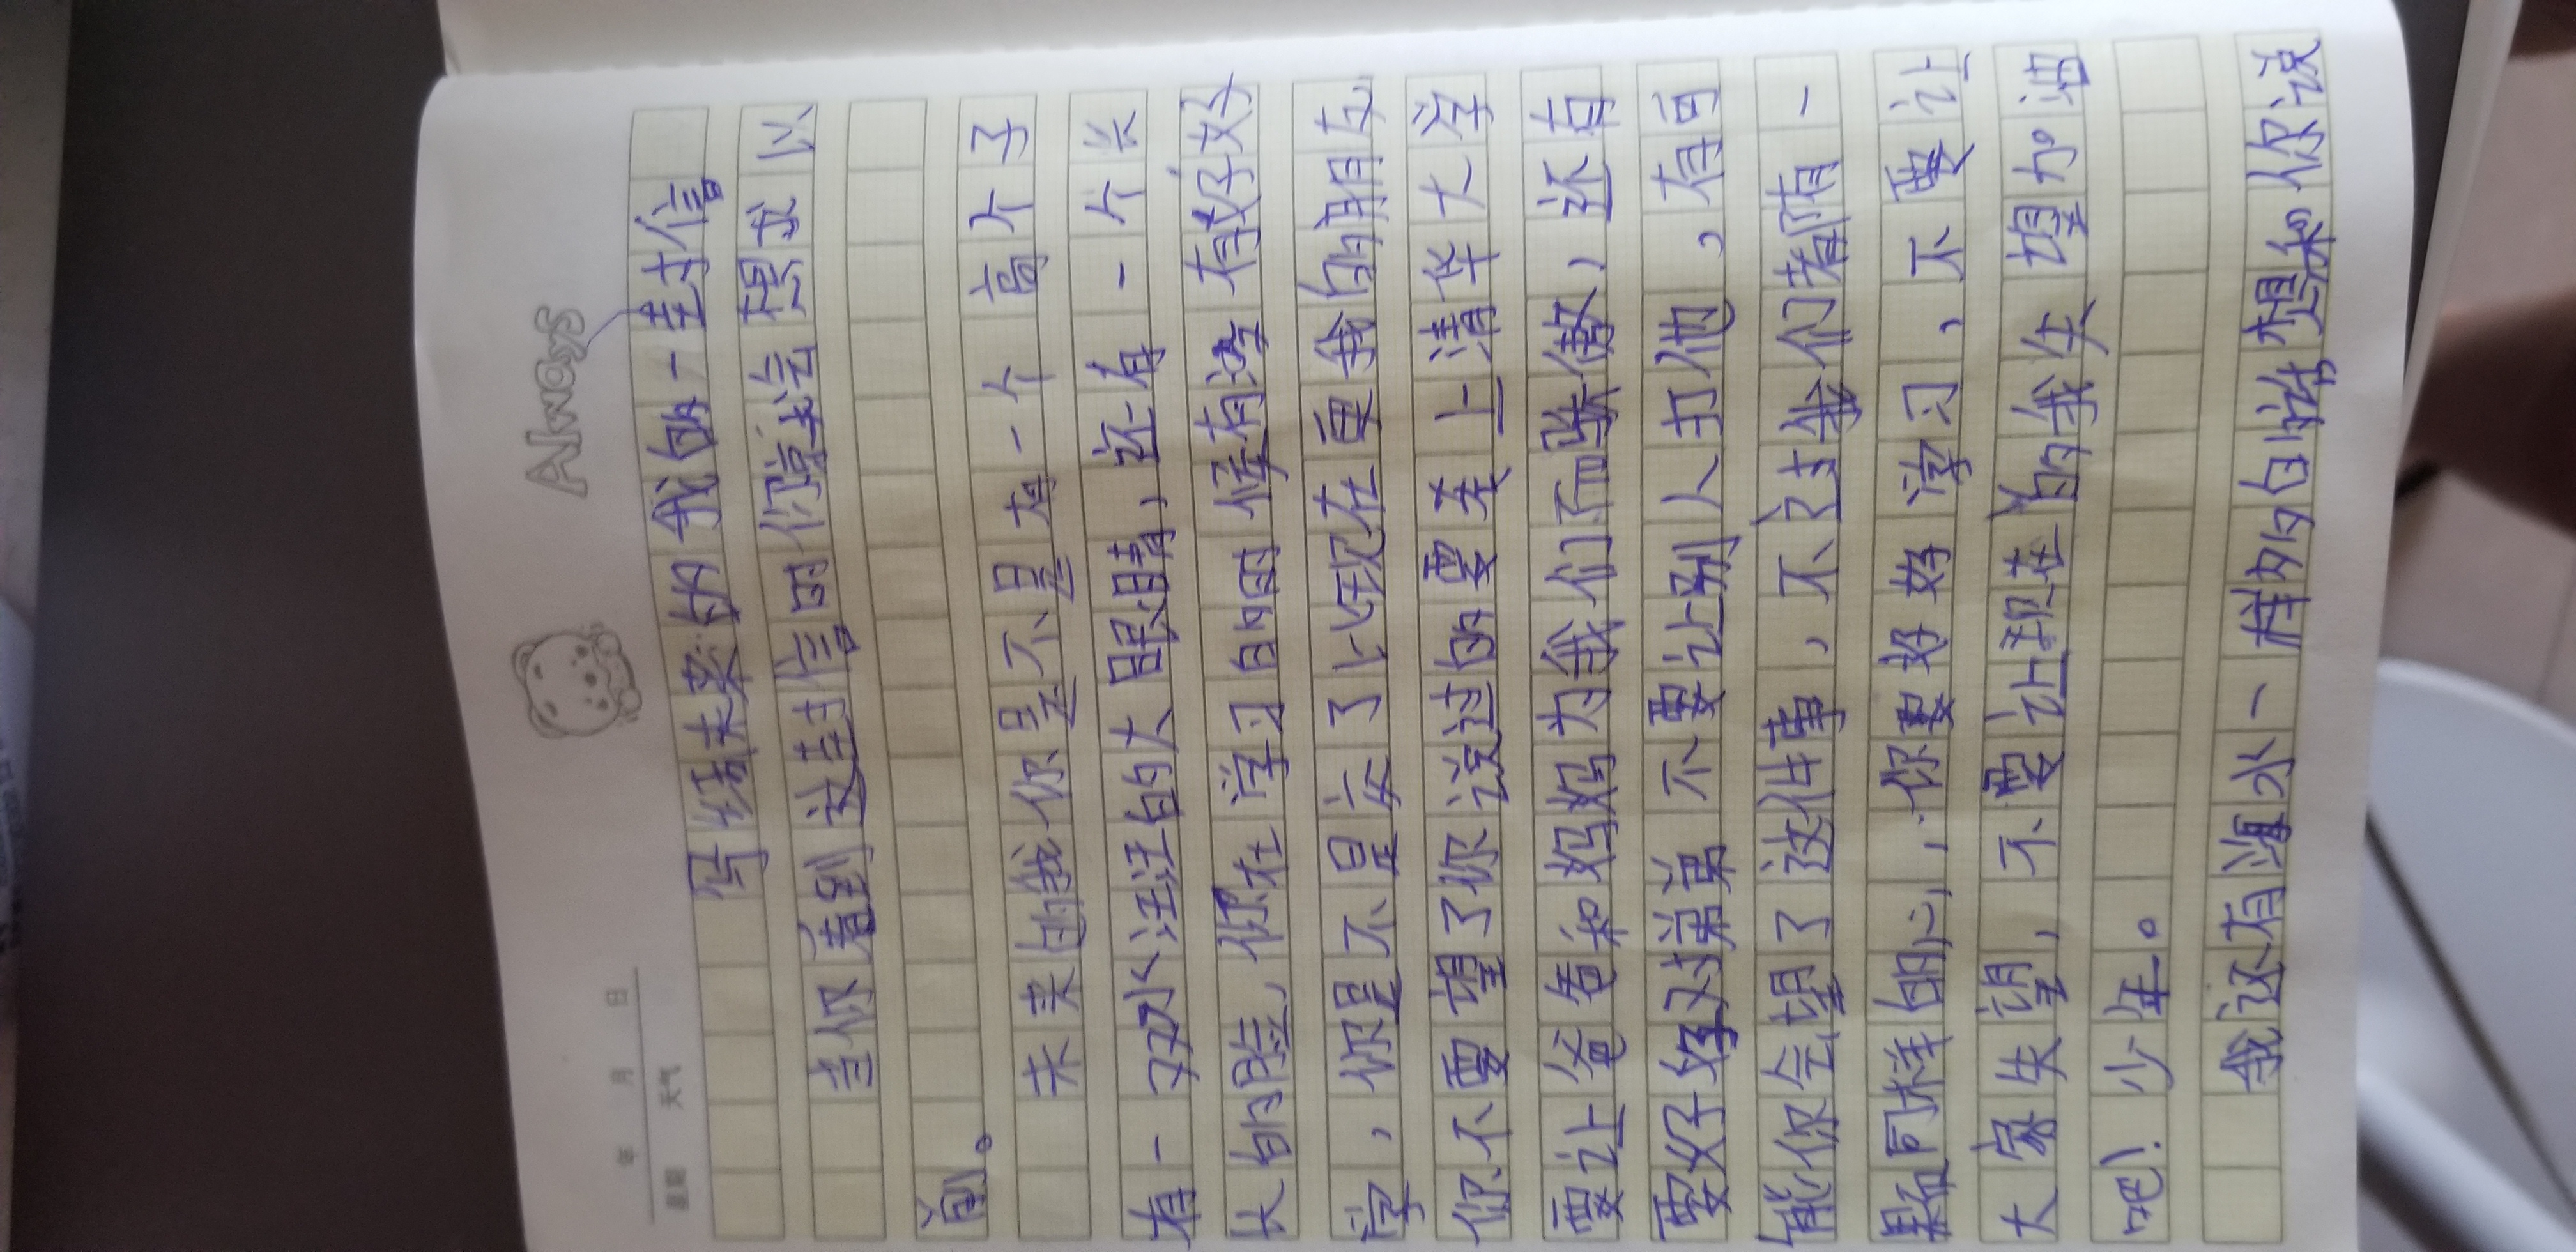 Always
年 月 日
星期 天气
写给未来的我的一封信
当你看到这封信时你意会想我以
前。
未来的我你是不是有一个高个子
有一双水汪汪的大眼睛，还有一个长
长的脸，你在学习的时候有没有好好
学，你是不是交了比现在更多的朋友
你不要望了你说过的要考上清华大学
要让爸爸和妈妈为我们而骄傲，还有
要好好对弟弟不要让别人打他，有可
能你会望了这件事，不过我们都有一
颗同样的心，你要好好学习，不要让
大家失望，不要让现在的我失望加油
吧！少年。
我还有滴水一样多的话想和你说